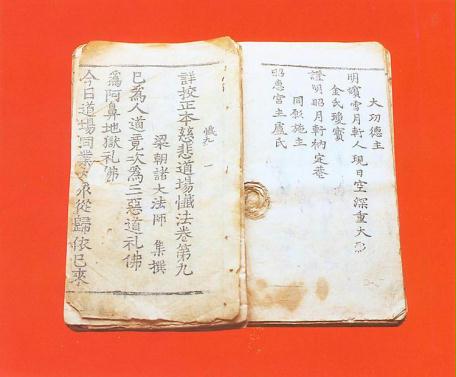 大功德主
明濱雪月軒人現日空 深重大
金氏瓊實
證明昭月軒枘定巷
同願施主
昭惠宮主盧氏
懺九 一
詳挍正本慈悲道場懺法卷第九
梁朝諸大法師 集撰
已爲人道竟次爲三惡道礼佛
爲阿鼻地獄礼佛
今日道場同業大衆從歸依已來